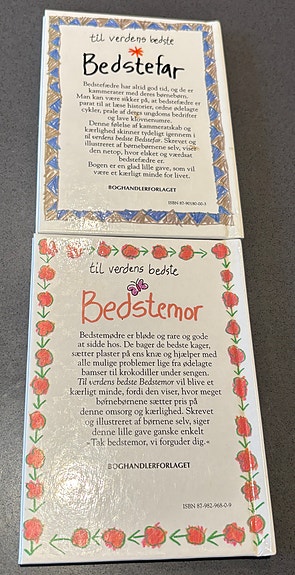 til verdens bedste
Bedstefar
Bedstefædre har altid god tid, og de er
kammerater med deres børnebørn.
Man kan være sikker på, at bedstefædre er
parat til at læse historier, ordne ødelagte
cykler, prale af deres ungdoms bedrifter
og lave klovnenumre.
Denne følelse af kammeratskab og
kærlighed skinner tydeligt igennem i
til verdens bedste Bedstefar. Skrevet og
illustreret af børnebørnene selv, viser
den netop, hvor elsket og værdsat
bedstefædre er.
Bogen er en glad lille gave, som vil
være et kærligt minde for livet.
BOGHANDLERFORLAGET
ISBN 87-90180-00-3
til verdens bedste
Bedstemor
Bedstemødre er bløde og rare og gode
at sidde hos. De bager de bedste kager,
sætter plaster på ens knæ og hjælper med
alle mulige problemer lige fra ødelagte
bamser til krokodiller under sengen.
Til verdens bedste Bedstemor vil blive et
kærligt minde, fordi den viser, hvor meget
børnebørnene sætter pris på
denne omsorg og kærlighed. Skrevet
og illustreret af børnene selv, siger
denne lille gave ganske enkelt
»Tak bedstemor, vi forguder dig.«
BOGHANDLERFORLAGET
ISBN 87-982-968-0-9